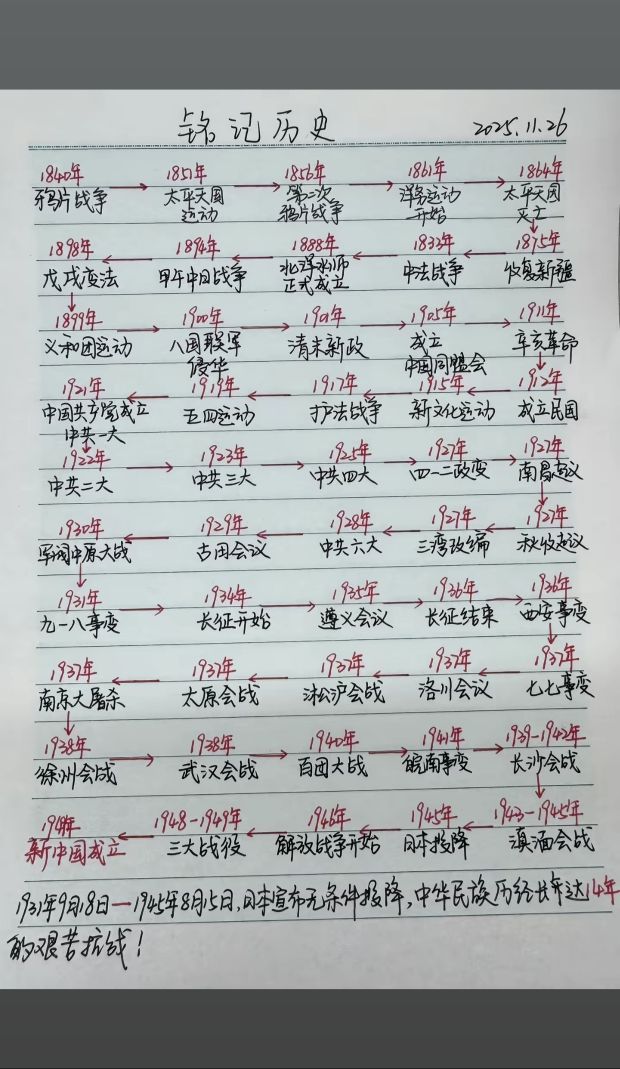 铭记历史 2025.11.26
1840年 1851年 1856年 1861年 1864年
鸦片战争 太平天国运动 第二次鸦片战争 洋务运动开始 太平天国灭亡
1898年 1894年 1888年 1883年 1875年
戊戌变法 甲午中日战争 北洋水师正式成立 中法战争 收复新疆
1899年 1900年 1901年 1905年 1911年
义和团运动 八国联军侵华 清末新政 成立中国同盟会 辛亥革命
1921年 1919年 1917年 1915年 1912年
中国共产党成立中共一大 五四运动 护法战争 新文化运动 成立民国
1922年 1923年 1925年 1927年 1927年
中共二大 中共三大 中共四大 四一二政变 南昌起义
1930年 1929年 1928年 1927年 1927年
军阀中原大战 古田会议 中共六大 三湾改编 秋收起义
1931年 1934年 1935年 1936年 1936年
九一八事变 长征开始 遵义会议 长征结束 西安事变
1937年 1937年 1937年 1937年 1937年
南京大屠杀 太原会战 淞沪会战 洛川会议 七七事变
1938年 1938年 1940年 1941年 1939-1942年
徐州会战 武汉会战 百团大战 皖南事变 长沙会战
1949年 1948-1949年 1946年 1945年 1943-1945年
新中国成立 三大战役 解放战争开始 日本投降 滇缅会战
1931年9月18日—1945年8月15日,日本宣布无条件投降,中华民族历经长年达14年
的艰苦抗战!